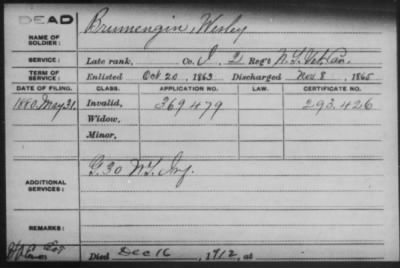 DEAD
Brumengin, Wesley
NAME OF SOLDIER:
SERVICE: Late rank, Co. I, 2 Reg't N.Y. Vet. Cav.
TERM OF SERVICE: Enlisted Oct. 20, 1863 Discharged Nov. 8, 1865
DATE OF FILING. CLASS. APPLICATION NO. LAW. CERTIFICATE NO.
1880 May 31. Invalid, 369479 293.426
Widow,
Minor,
ADDITIONAL SERVICES: G. 30 N.Y. Inf.
REMARKS:
Died Dec 16, 1912, at